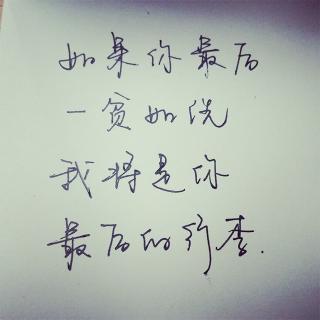 如果你最后
一贫如洗
我将是你
最后的行李.